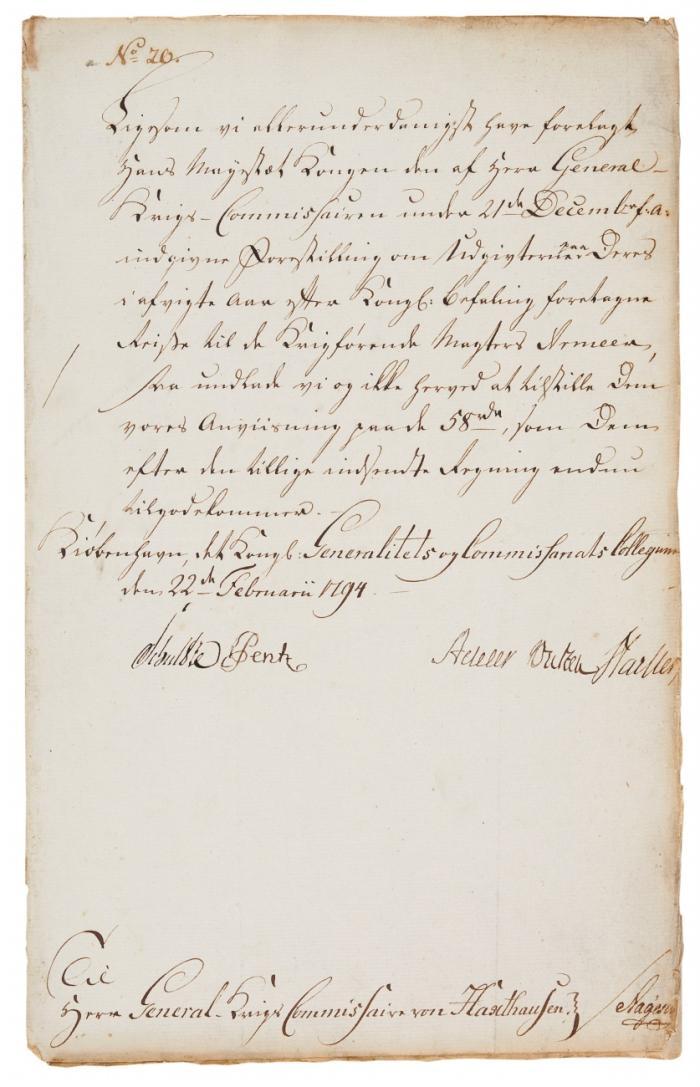 No 20.
Ligesom vi allerunderdanigst have forelagt
Hans Mayestæt Kongen den af Herr General-
Krigs-Commissairen under 21de Decembr f: a:
indgivne Forestilling om Udgifterne paa Deres
i afvigte Aar efter Kongl: Befaling foretagne
Reise til de Krigførende Magters Armeer,
saa undlade vi og ikke herved at tilstille Dem
vores Anviisning paa de 58 rdr, som Dem
efter den tillige indsendte Regning endnu
tilgodekommer. -
Kiøbenhavn, det Kongl: Generalitets og Commissariats Collegium
den 22de Februarii 1794. -
Schultze Pentz Adeler
Til
Herr General-Krigs Commissaire von Haxthausen